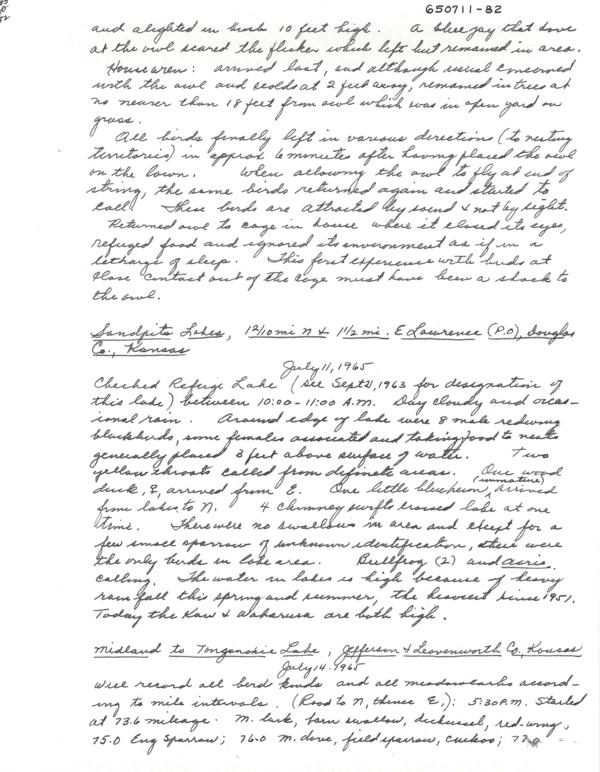 650711-82
and alighted in bush 10 feet high. A blue jay that dove
at the owl scared the flicker which left but remained in area.
House wren: arrived last, and although usual concerned
with the owl and scolds at 2 feet away, remained in trees at
no nearer than 18 feet from owl which was in open yard on
grass.
All birds finally left in various direction (to nesting
territories) in approx 6 minutes after having placed the owl
on the lawn. When allowing the owl to fly at end of
string, the same birds returned again and started to
call. These birds are attracted by sound & not by sight.
Returned owl to cage in house where it closed its eyes,
refused food and ignored its environment as if in a
lethargy of sleep. This first experience with birds at
close contact out of the cage must have been a shock to
the owl.
Sandpits Lakes, 1 2/10 mi N & 1 1/2 mi. E Lawrence (P.O), Douglas
Co., Kansas
July 11, 1965
Checked Refuge Lake (see Sept 21, 1963 for designation of
this lake) between 10:00-11:00 A.M. Day cloudy and occas-
ional rain. Around edge of lake were 8 male redwing
blackbirds, some females associated and taking food to nests
generally placed 3 feet above surface of water. Two
yellowthroats called from definite areas. One wood
duck, ♀, arrived from E. One little blue heron (immature) arrived
from lakes to N. 4 chimney swifts crossed lake at one
time. There were no swallows in area and except for a
few small sparrow of unknown identification, these were
the only birds in lake area. Bullfrog (2) and acris
calling. The water in lakes is high because of heavy
rain fall this spring and summer, the heaviest since 1951.
Today the Kaw & Wakarusa are both high.
Midland to Tonganoxie Lake, Jefferson & Leavenworth Co, Kansas
July 14, 1965
Will record all bird kinds and all meadowlarks accord-
ing to mile intervals. (Road to N, thence E.); 5:30 P.M. Started
at 73.6 mileage. M. lark, barn swallow, dickcissel, red-wing,
75.0 Eng Sparrow; 76.0 M. dove, field sparrow, cuckoo;